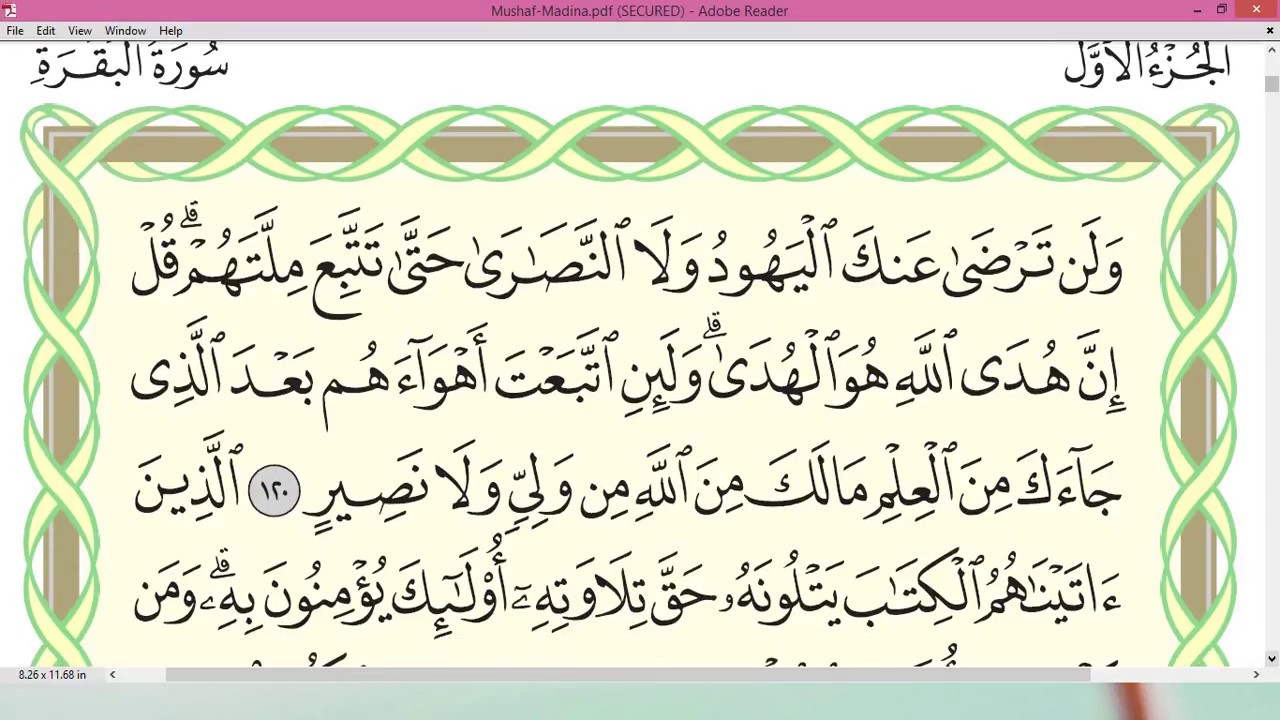 Mushaf-Madina.pdf (SECURED) - Adobe Reader
File Edit View Window Help
الجُزْءُ الأَوَّل سُورَةُ البَقَرَةِ
وَلَن تَرْضَىٰ عَنكَ ٱلْيَهُودُ وَلَا ٱلنَّصَٰرَىٰ حَتَّىٰ تَتَّبِعَ مِلَّتَهُمْۗ قُلْ
إِنَّ هُدَى ٱللَّهِ هُوَ ٱلْهُدَىٰۗ وَلَئِنِ ٱتَّبَعْتَ أَهْوَآءَهُم بَعْدَ ٱلَّذِى
جَآءَكَ مِنَ ٱلْعِلْمِ مَا لَكَ مِنَ ٱللَّهِ مِن وَلِىٍّ وَلَا نَصِيرٍ ١٢٠ ٱلَّذِينَ
ءَاتَيْنَٰهُمُ ٱلْكِتَٰبَ يَتْلُونَهُۥ حَقَّ تِلَاوَتِهِۦٓ أُو۟لَٰٓئِكَ يُؤْمِنُونَ بِهِۦۗ وَمَن
8.26 x 11.68 in